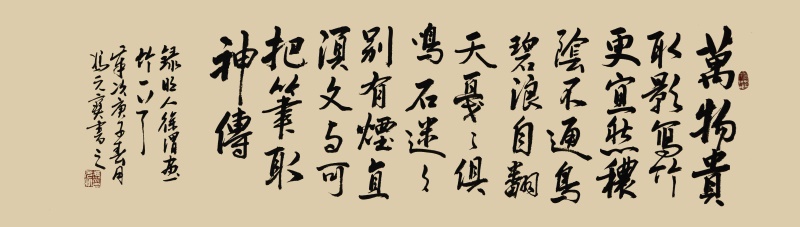 萬物貴
取影寫竹
更宜然穠
陰不通鳥
碧浪自翻
天戛〻俱
鳴石迷〻
別有煙直
湏文与可
把筆取
神傳
録明人徐渭画
竹一
歲次庚子春月
元寶書之